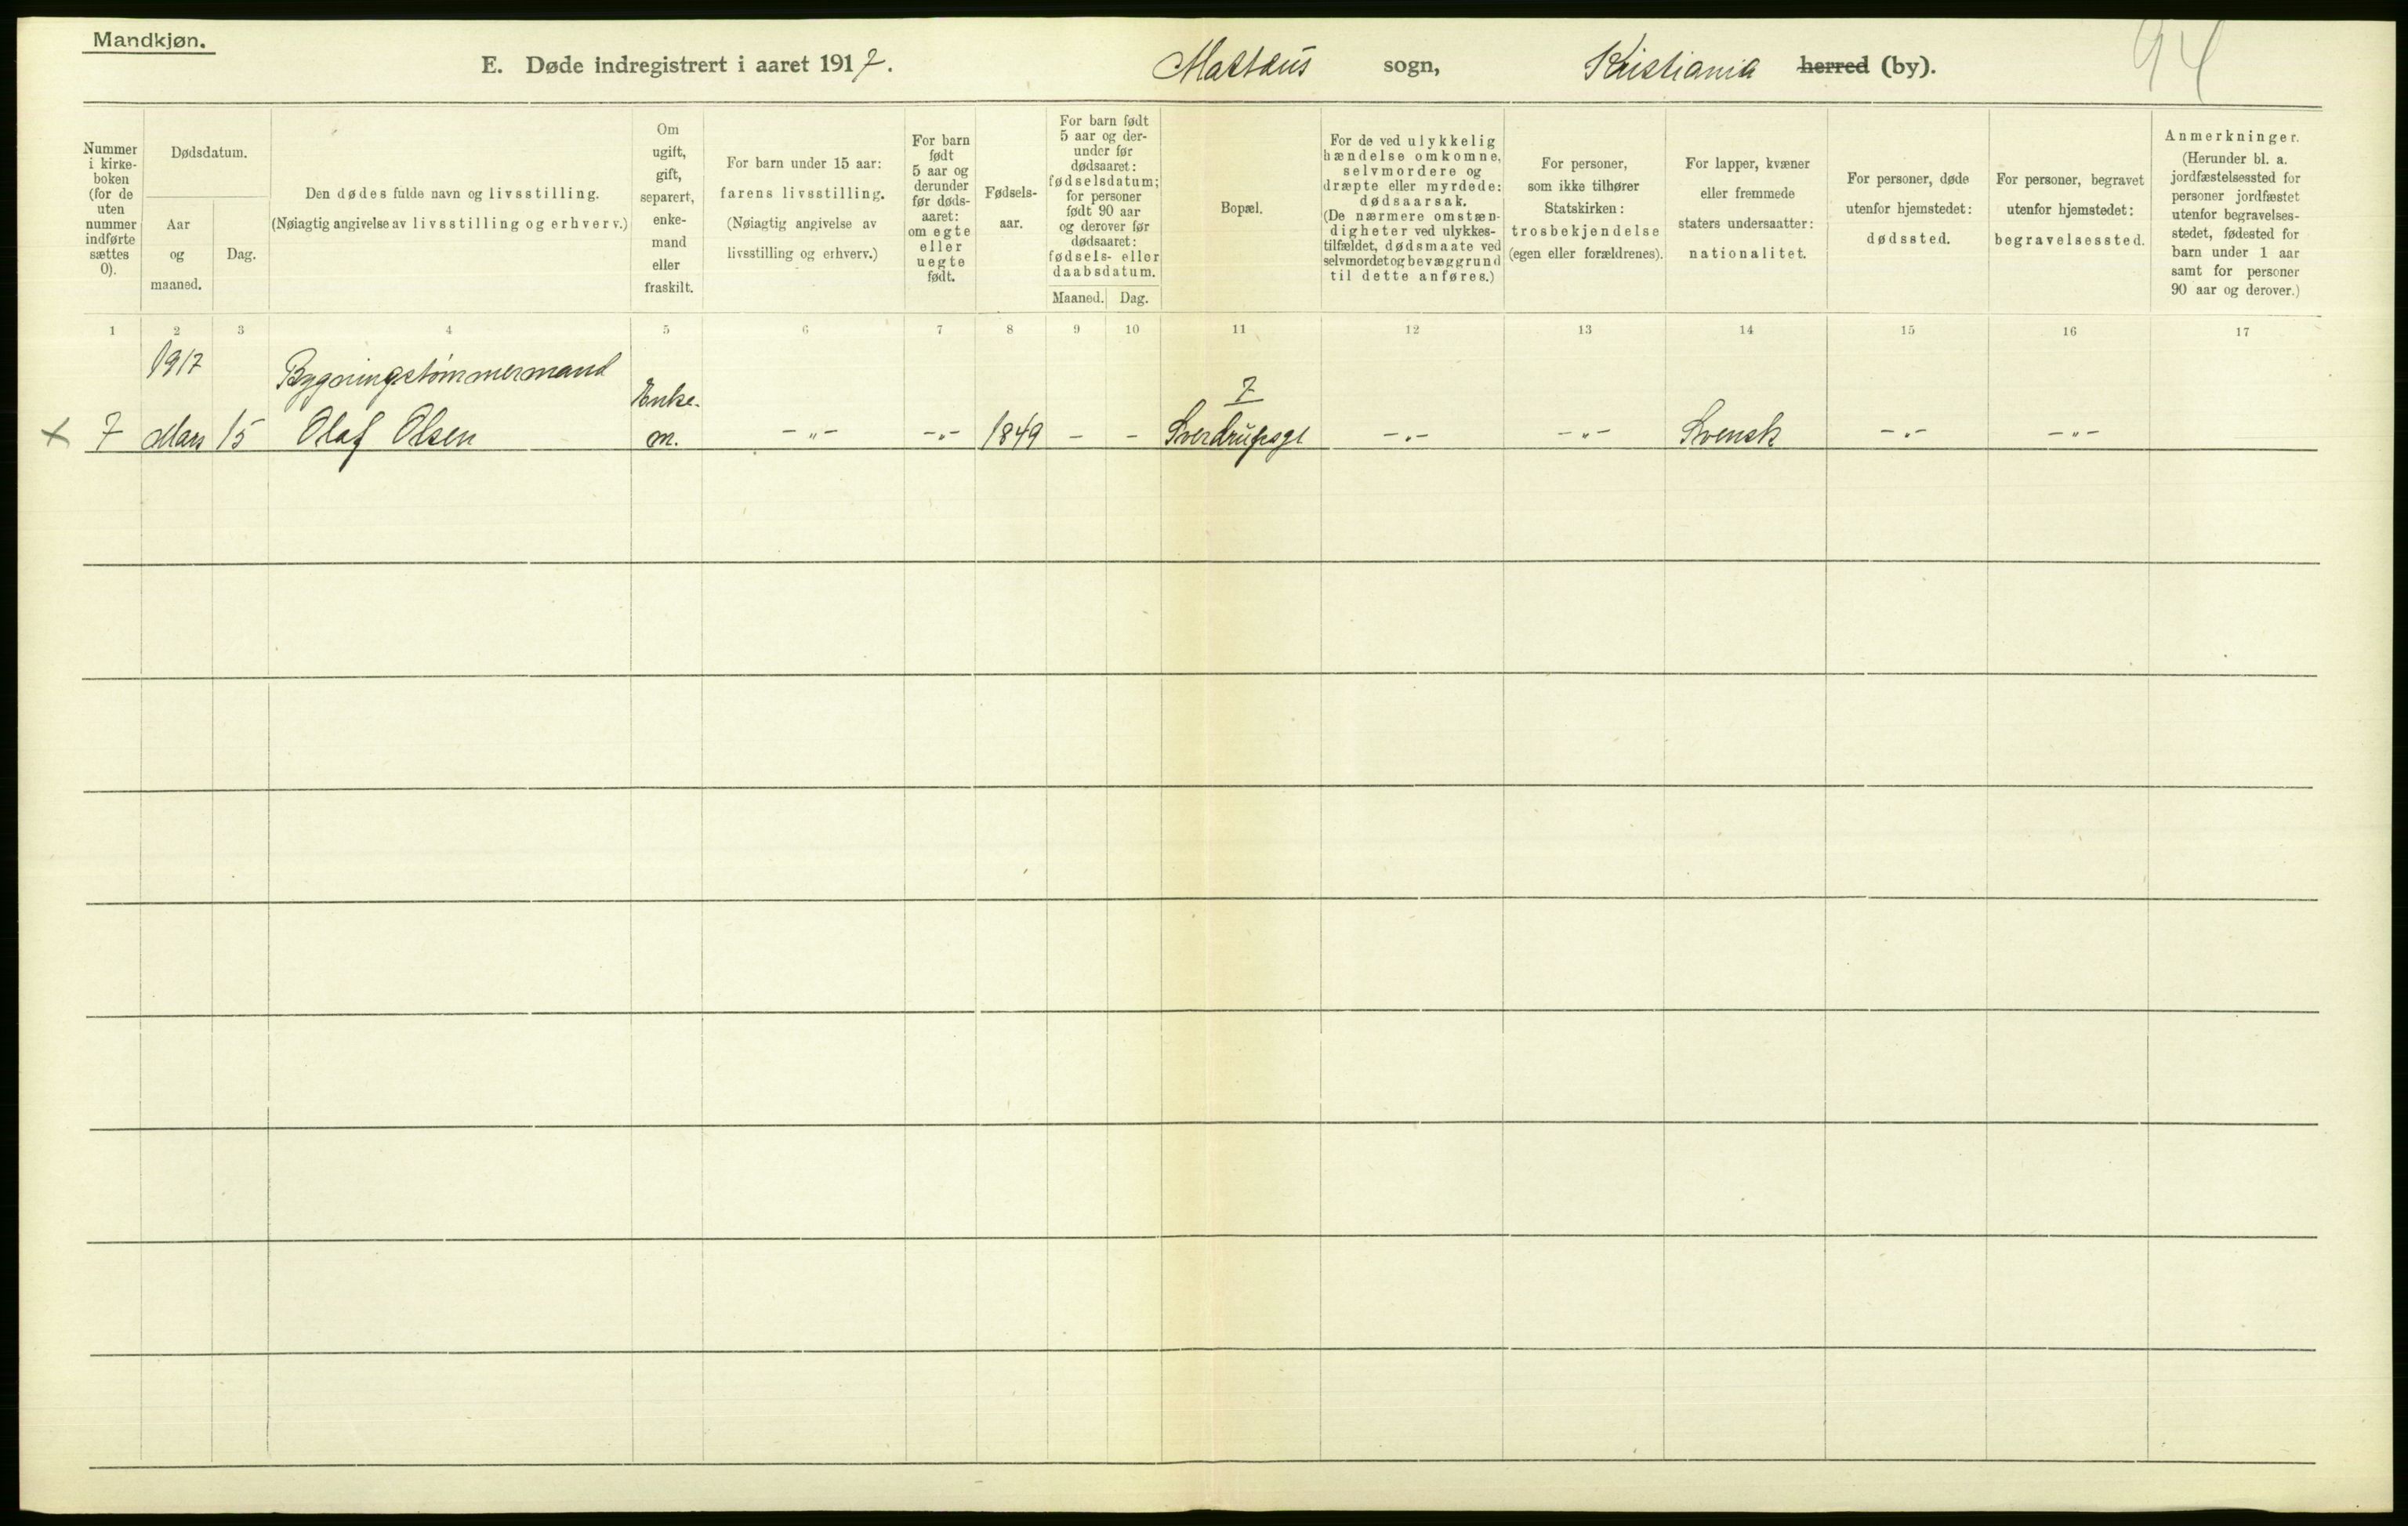 Mandkjøn.
E. Døde indregistrert i aaret 1917. Mattæus sogn, Kristiania herred (by).
94
Nummer
i kirke-
boken
(for de
uten
nummer
indførte
sættes
0).
Dødsdatum.
Aar
og
maaned.
Dag.
Den dødes fulde navn og livsstilling.
(Nøiagtig angivelse av livsstilling og erhverv.)
Om
ugift,
gift,
separert,
enke-
mand
eller
fraskilt.
For barn under 15 aar:
farens livsstilling.
(Nøiagtig angivelse av
livsstilling og erhverv.)
For barn
født
5 aar og
derunder
før døds-
aaret:
om egte
eller
uegte
født.
Fødsels-
aar.
For barn født
5 aar og der-
under før
dødsaaret:
fødselsdatum;
for personer
født 90 aar
og derover før
dødsaaret:
fødsels- eller
daabsdatum.
Maaned. Dag.
Bopæl.
For de ved ulykkelig
hændelse omkomne,
selvmordere og
dræpte eller myrdede:
dødsaarsak.
(De nærmere omstæn-
digheter ved ulykkes-
tilfældet, dødsmaate ved
selvmordet og bevæggrund
til dette anføres.)
For personer,
som ikke tilhører
Statskirken:
trosbekjendelse
(egen eller forældrenes).
For lapper, kvæner
eller fremmede
staters undersaatter:
nationalitet.
For personer, døde
utenfor hjemstedet:
dødssted.
For personer, begravet
utenfor hjemstedet:
begravelsessted.
Anmerkninger.
(Herunder bl. a.
jordfæstelsessted for
personer jordfæstet
utenfor begravelses-
stedet, fødested for
barn under 1 aar
samt for personer
90 aar og derover.)
1 2 3 4 5 6 7 8 9 10 11 12 13 14 15 16 17
1917 Bygningstømmermand Enke- 7
x 7 Mars 15 Olaf Olsen m. -"- -"- 1849 - - Sverdrupsgt -"- -"- Svensk -"- -"-